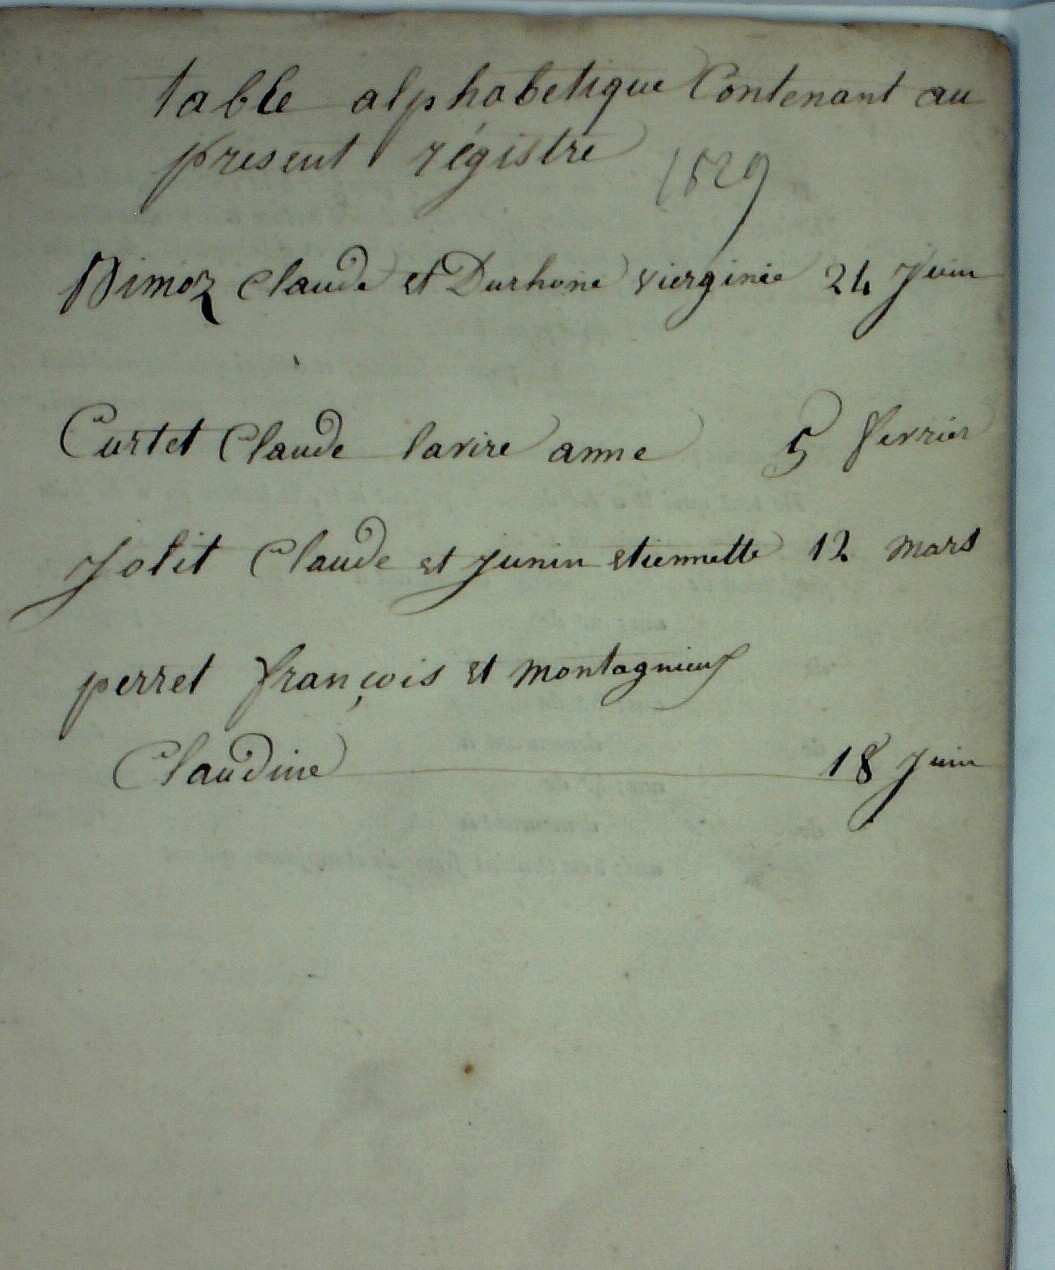 table alphabetique Contenant au
present régistre
1829
Bimoz Claude et Durhone vierginie 24 Juin
Curtet Claude lavire anne 5 fevrier
Jolit Claude et Junin etiennette 12 mars
perret françois et montagnieux
Claudine 18 Juin